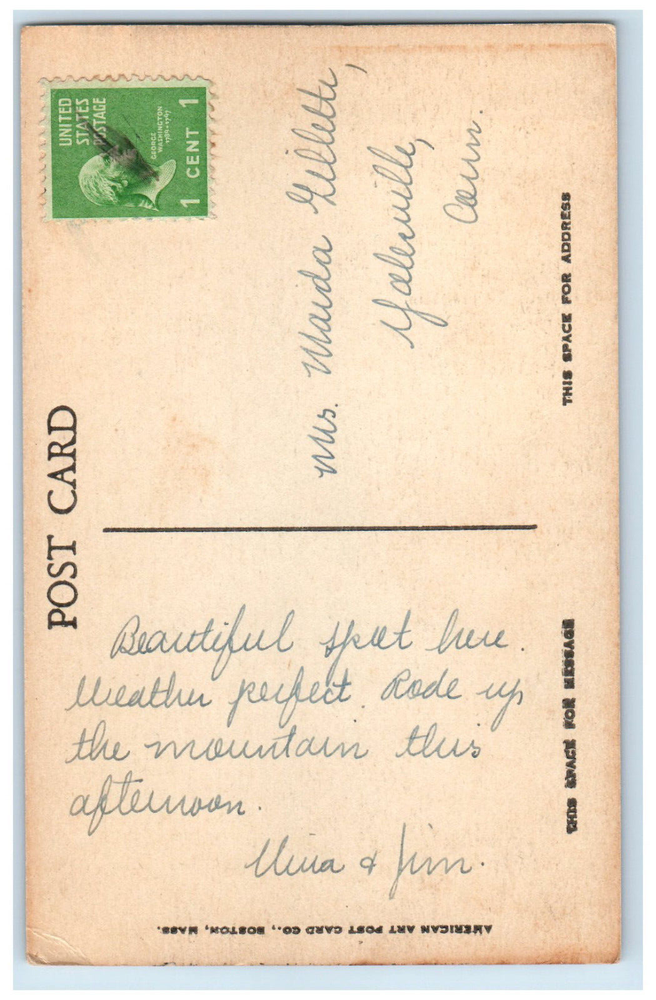 POST CARD
UNITED
STATES
POSTAGE
GEORGE
WASHINGTON
1789-1797
1 CENT 1
Mrs. Maida Gillette,
Yalesville,
Conn.
THIS SPACE FOR ADDRESS
Beautiful spot here.
Weather perfect. Rode up
the mountain this
afternoon.
& Jim.
THIS SPACE FOR MESSAGE
AMERICAN ART POST CARD CO., BOSTON, MASS.